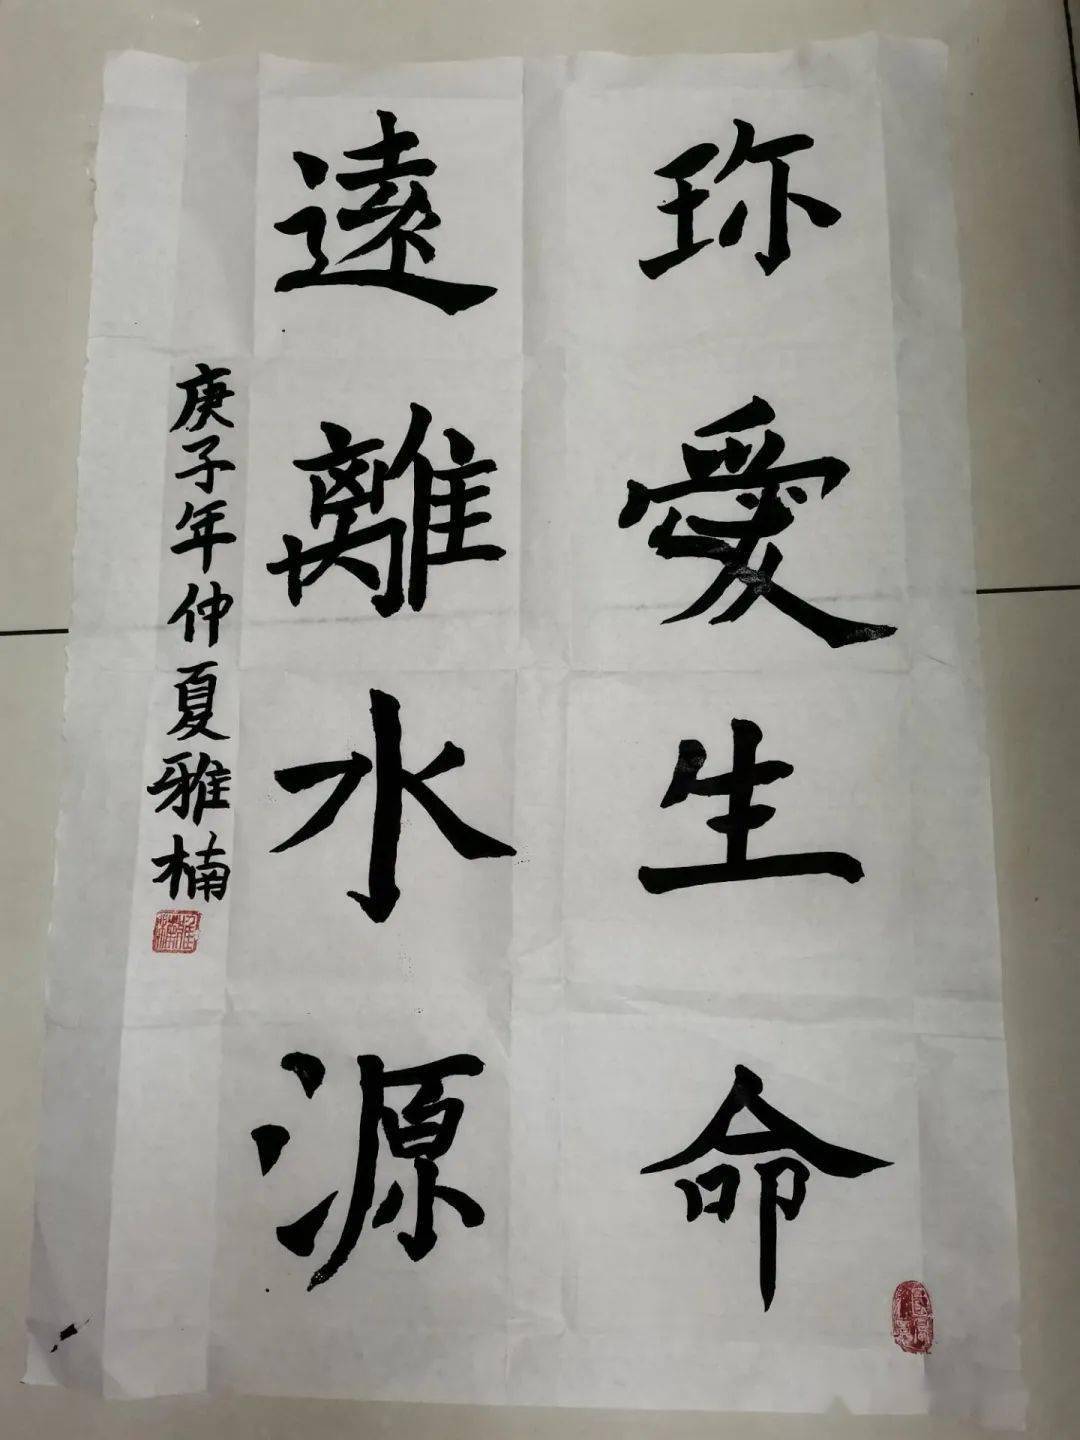 珎愛生命
遠離水源
庚子年仲夏雅楠